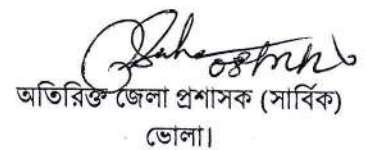 অতিরিক্ত জেলা প্রশাসক (সার্বিক)
ভোলা।